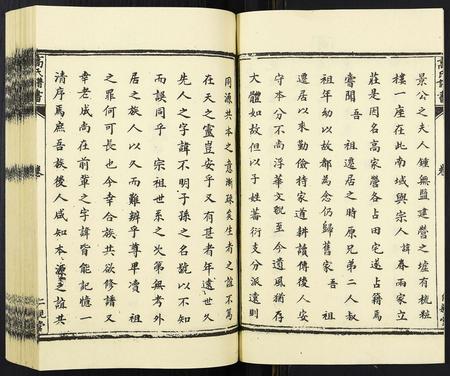 景公之夫人鍾無鹽建營之墟有梳粧
樓一座在此南城與宗人諱春兩家立
莊是因名高家營各占田宅遂占籍焉
嘗聞吾祖遷居之時原兄弟二人叔
祖年幼以故都為念仍歸舊家吾祖
遷居以來勤儉持家道耕讀傳後人安
守本分不尚浮華文貌至今遺風猶存
大體如故但以子姓蕃衍支分派遠則
同源共本之意漸疎矣生者之誼不篤
在天之靈豈安乎又有甚者年遠世久
先人之字諱不明子孫之名號以不知
而誤同乎宗祖世系之次第無考外
居之族人以久而難辯乎尊卑凟祖
之罪何可長也今幸合族共欲修譜又
幸老成尚在前輩之字諱皆能記憶一
清序焉庶吾族後人咸知本源之誼共
高氏譜書
卷
仁親堂
高氏譜書
卷